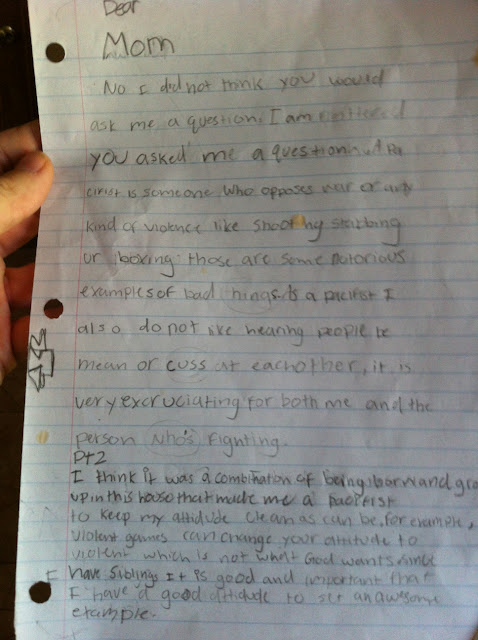 Dear
Mom
No I did not think you would
ask me a question. I am
you asked me a question. A Pa
cifist is someone who opposes war or any
kind of violence like shooting stabbing
or boxing. those are some notorious
examples of bad things. As a pacifist I
also do not like hearing people be
mean or cuss at eachother, it is
very excruciating for both me and the
person who's fighting.
Pt2
I think it was a combination of being born and gro
up in this house that made me a pacifist
to keep my attidude clean as can be. for example,
violent games can change your attitude to
violent which is not what God wants. since
I have siblings It is good and important that
I have a good attidude to set an awesome
example.